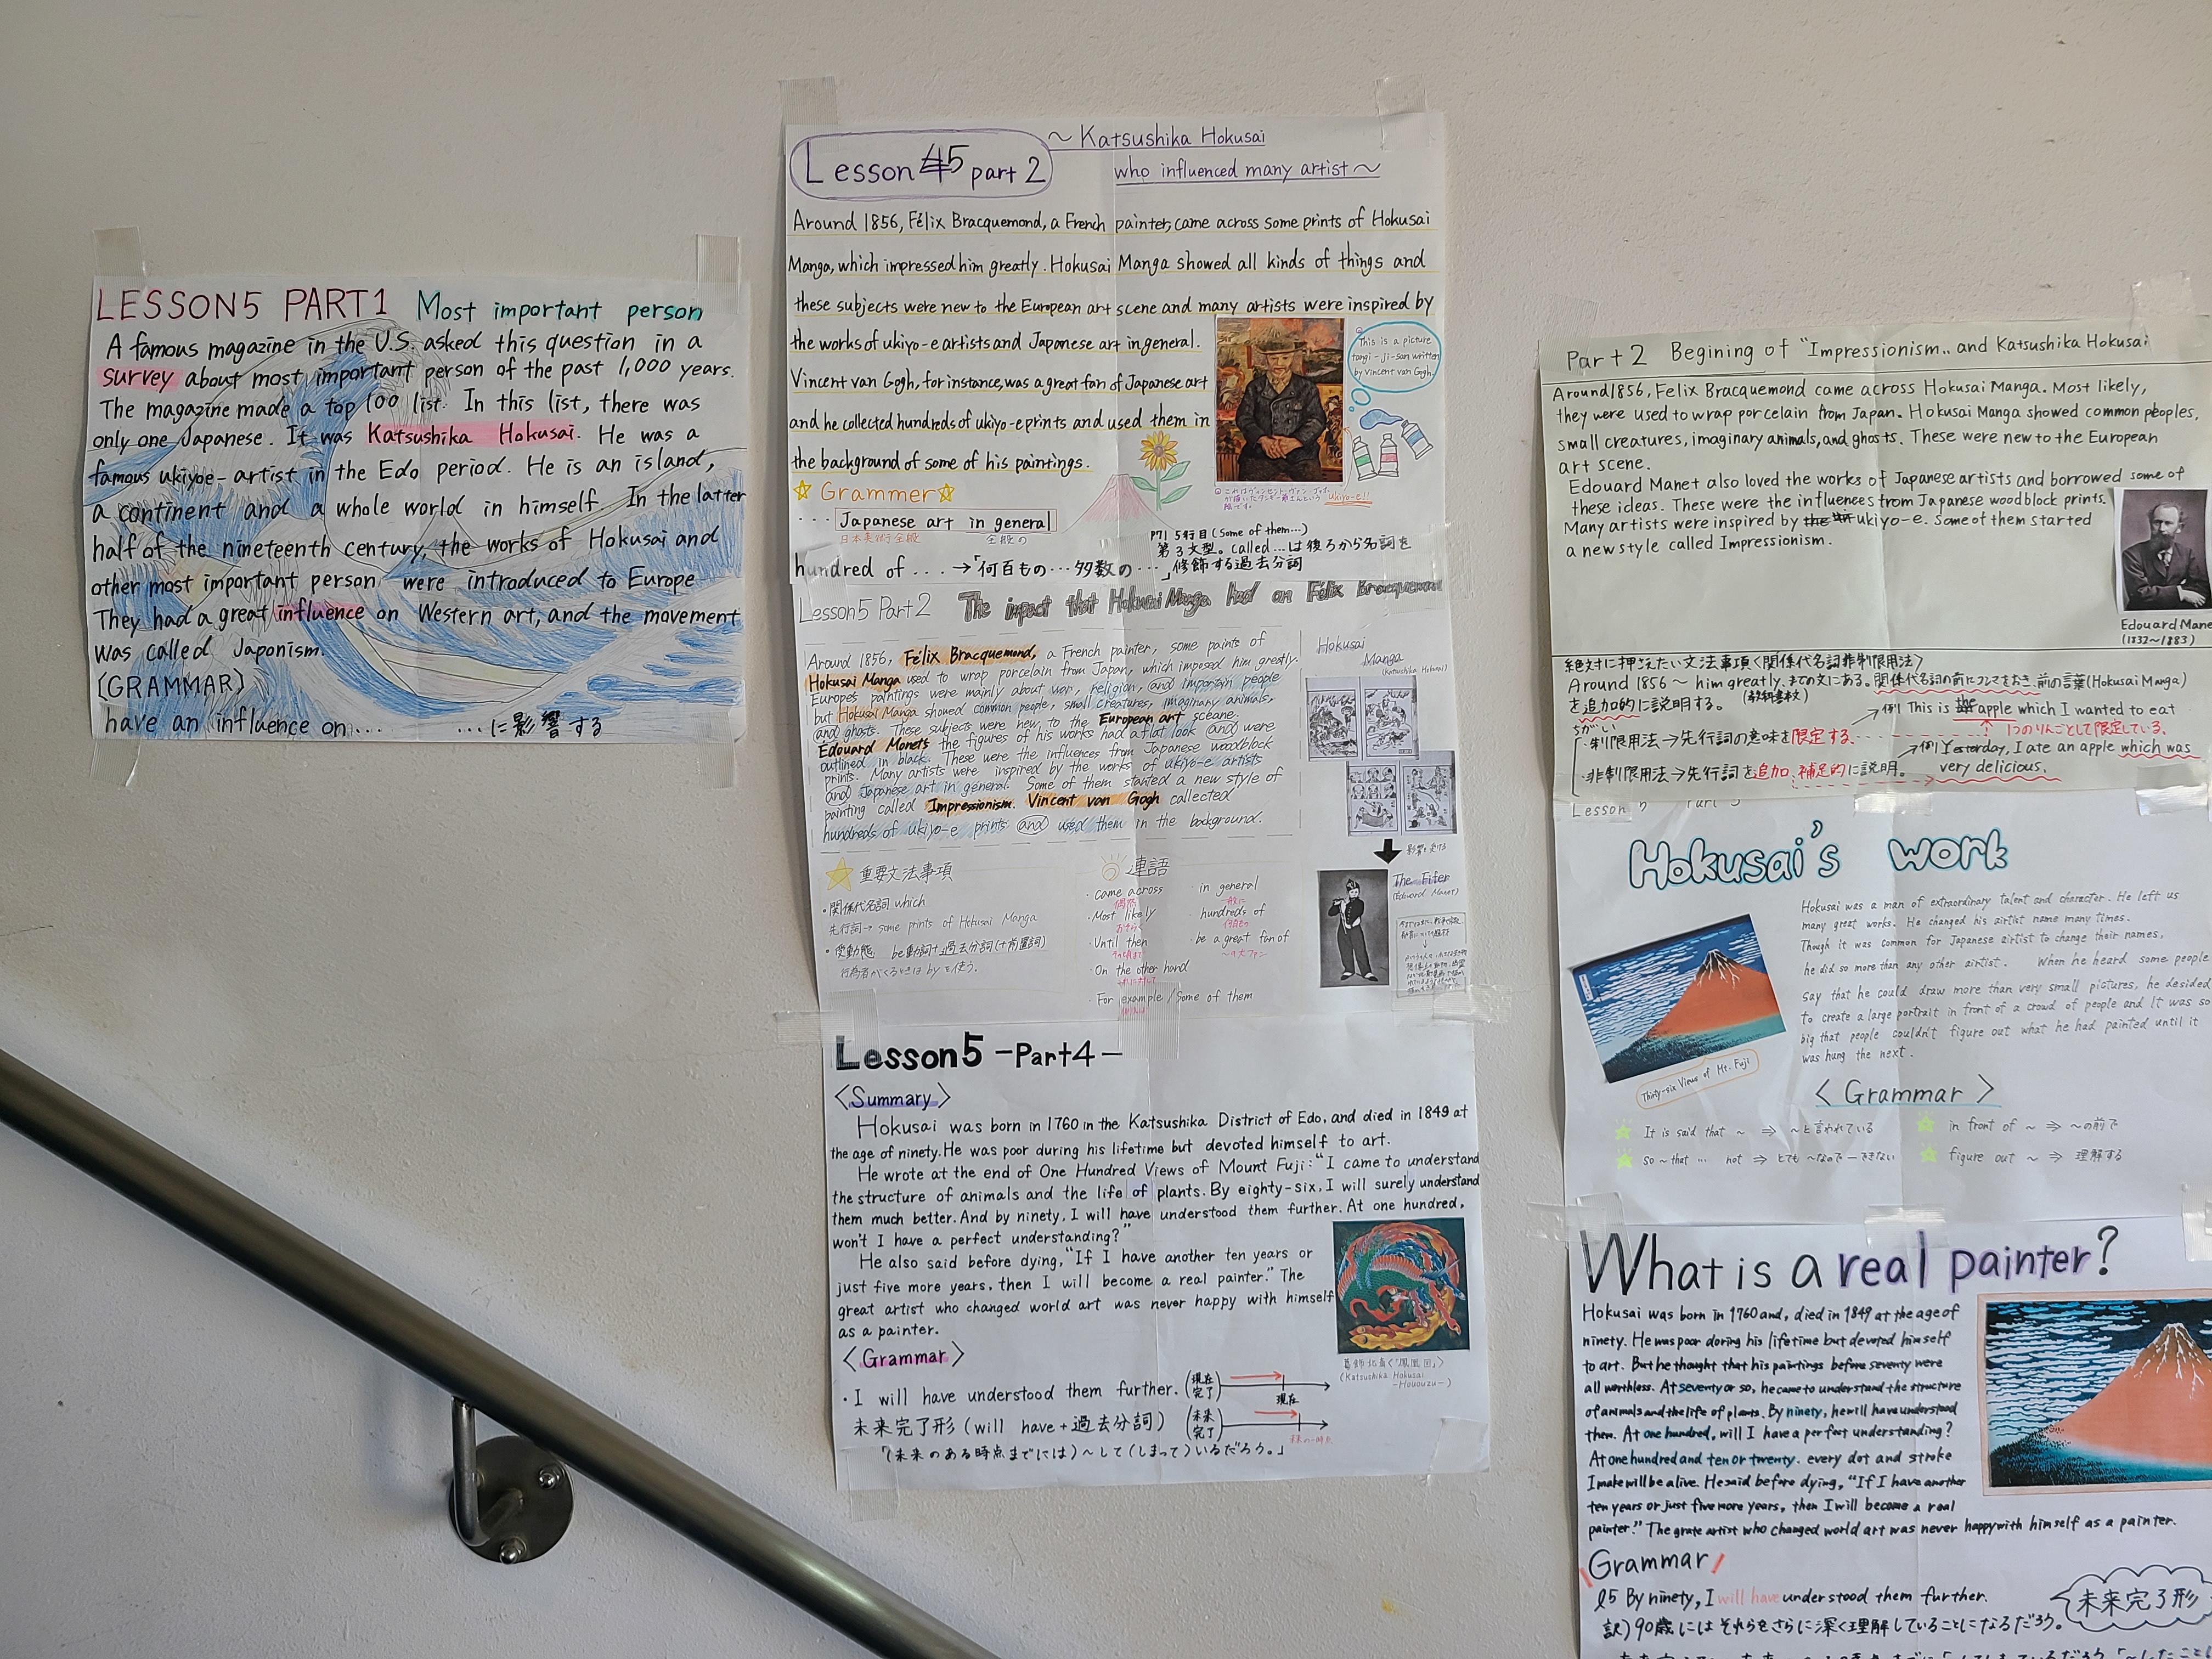 LESSON5 PART1 Most important person
A famous magazine in the U.S. asked this question in a
survey about most important person of the past 1,000 years.
The magazine made a top 100 list. In this list, there was
only one Japanese. It was Katsushika Hokusai. He was a
famous ukiyoe-artist in the Edo period. He is an island,
a continent and a whole world in himself. In the latter
half of the nineteenth century, the works of Hokusai and
other most important person were introduced to Europe
They had a great influence on Western art, and the movement
was called Japonism.
(GRAMMAR)
have an influence on... ...に影響する
Lesson 5 part 2
~ Katsushika Hokusai
who influenced many artist ~
Around 1856, Félix Bracquemond, a French painter, came across some prints of Hokusai
Manga, which impressed him greatly. Hokusai Manga showed all kinds of things and
these subjects were new to the European art scene and many artists were inspired by
the works of ukiyo-e artists and Japanese art in general.
Vincent van Gogh, for instance, was a great fan of Japanese art
and he collected hundreds of ukiyo-e prints and used them in
the background of some of his paintings.
This is a picture
tangi-ji-san written
by Vincent van Gogh.
ukiyo-e!!
☆ Grammer ☆
... Japanese art in general
日本美術全般 全般の
hundred of .... →「何百もの…多数の…」
P71 5行目 (Some of them...)
第3文型。called...は後ろから名詞を
修飾する過去分詞
Lesson5 Part2 The impact that Hokusai Manga had on Félix Bracquemond
Around 1856, Félix Bracquemond, a French painter, some paints of
Hokusai Manga used to wrap porcelain from Japan, which imposed him greatly.
Europe's paintings were mainly about war, religion, and important people
but Hokusai Manga showed common people, small creatures, imaginary animals,
and ghosts. These subjects were new to the European art sceane.
Edouard Monet's the figures of his works had a flat look and were
outlined in black. These were the influences from Japanese woodblock
prints. Many artists were inspired by the works of ukiyo-e artists
and Japanese art in general. Some of them started a new style of
painting called Impressionism. Vincent van Gogh collected
hundreds of ukiyo-e prints and used them in the background.
Hokusai
Manga
(Katsushika Hokusai)
影響を受ける
The Fifer
(Edouard Manet)
重要文法事項
・関係代名詞 which
先行詞→ some prints of Hokusai Manga
・受動態 be動詞+過去分詞(+前置詞)
行為者がくるときは by を使う。
連語
・came across
偶然
・Most likely
おそらく
・Until then
・On the other hand
・For example / Some of them
・in general
一般に
・hundreds of
何百もの
・be a great fan of
~の大ファン
Lesson5 -Part4-
<Summary>
Hokusai was born in 1760 in the Katsushika District of Edo, and died in 1849 at
the age of ninety. He was poor during his lifetime but devoted himself to art.
He wrote at the end of One Hundred Views of Mount Fuji: "I came to understand
the structure of animals and the life of plants. By eighty-six, I will surely understand
them much better. And by ninety, I will have understood them further. At one hundred,
won't I have a perfect understanding?"
He also said before dying, "If I have another ten years or
just five more years, then I will become a real painter." The
great artist who changed world art was never happy with himself
as a painter.
葛飾北斎《鳳凰図》
(Katsushika Hokusai
-Hououzu-)
<Grammar>
・I will have understood them further.
(現在完了) 現在
未来完了形 (will have + 過去分詞)
(未来完了) 未来の一時点
「(未来のある時点までには)~して(しまって)いるだろう。」
Part 2 Begining of "Impressionism.. and Katsushika Hokusai
Around1856, Felix Bracquemond came across Hokusai Manga. Most likely,
they were used to wrap porcelain from Japan. Hokusai Manga showed common peoples,
small creatures, imaginary animals, and ghosts. These were new to the European
art scene.
Edouard Manet also loved the works of Japanese artists and borrowed some of
these ideas. These were the influences from Japanese woodblock prints.
Many artists were inspired by ukiyo-e. Some of them started
a new style called Impressionism.
Edouard Mane
(1832~1883)
絶対に押さえたい文法事項<関係代名詞非制限用法>
Around 1856 ~ him greatly. までの文にある。関係代名詞の前にコンマをおき、前の言葉(Hokusai Manga)
を追加的に説明する。 (教科書本文)
例) This is apple which I wanted to eat
ちがい
・制限用法→先行詞の意味を限定する。
1つのりんごとして限定している。
例) Yesterday, I ate an apple which was
very delicious.
・非制限用法→先行詞を追加、補足的に説明。
Lesson 5 Part 3
Hokusai's work
Hokusai was a man of extraordinary talent and character. He left us
many great works. He changed his airtist name many times.
Though it was common for Japanese airtist to change their names,
he did so more than any other airtist. When he heard some people
say that he could draw more than very small pictures, he desided
to create a large portrait in front of a crowd of people and It was so
big that people couldn't figure out what he had painted until it
was hung the next.
Thirty-six Views of Mt. Fuji
<Grammar>
It is said that ~ ⇒ ~と言われている
in front of ~ ⇒ ~の前で
so ~ that ... not ⇒ とても~なので…できない
figure out ~ ⇒ 理解する
What is a real painter?
Hokusai was born in 1760 and, died in 1849 at the age of
ninety. He was poor doring his lifetime but devoted himself
to art. But he thought that his paintings before seventy were
all worthless. At seventy or so, he came to understand the structure
of animals and the life of plants. By ninety, he will have understood
them. At one hundred, will I have a perfect understanding?
At one hundred and ten or twenty. every dot and stroke
I make will be alive. He said before dying, "If I have another
ten years or just five more years, then I will become a real
painter." The grate artist who changed world art was never happy with himself as a painter.
Grammar
l5 By ninety, I will have understood them further.
未来完了形
訳) 90歳にはそれらをさらに深く理解していることになるだろう。